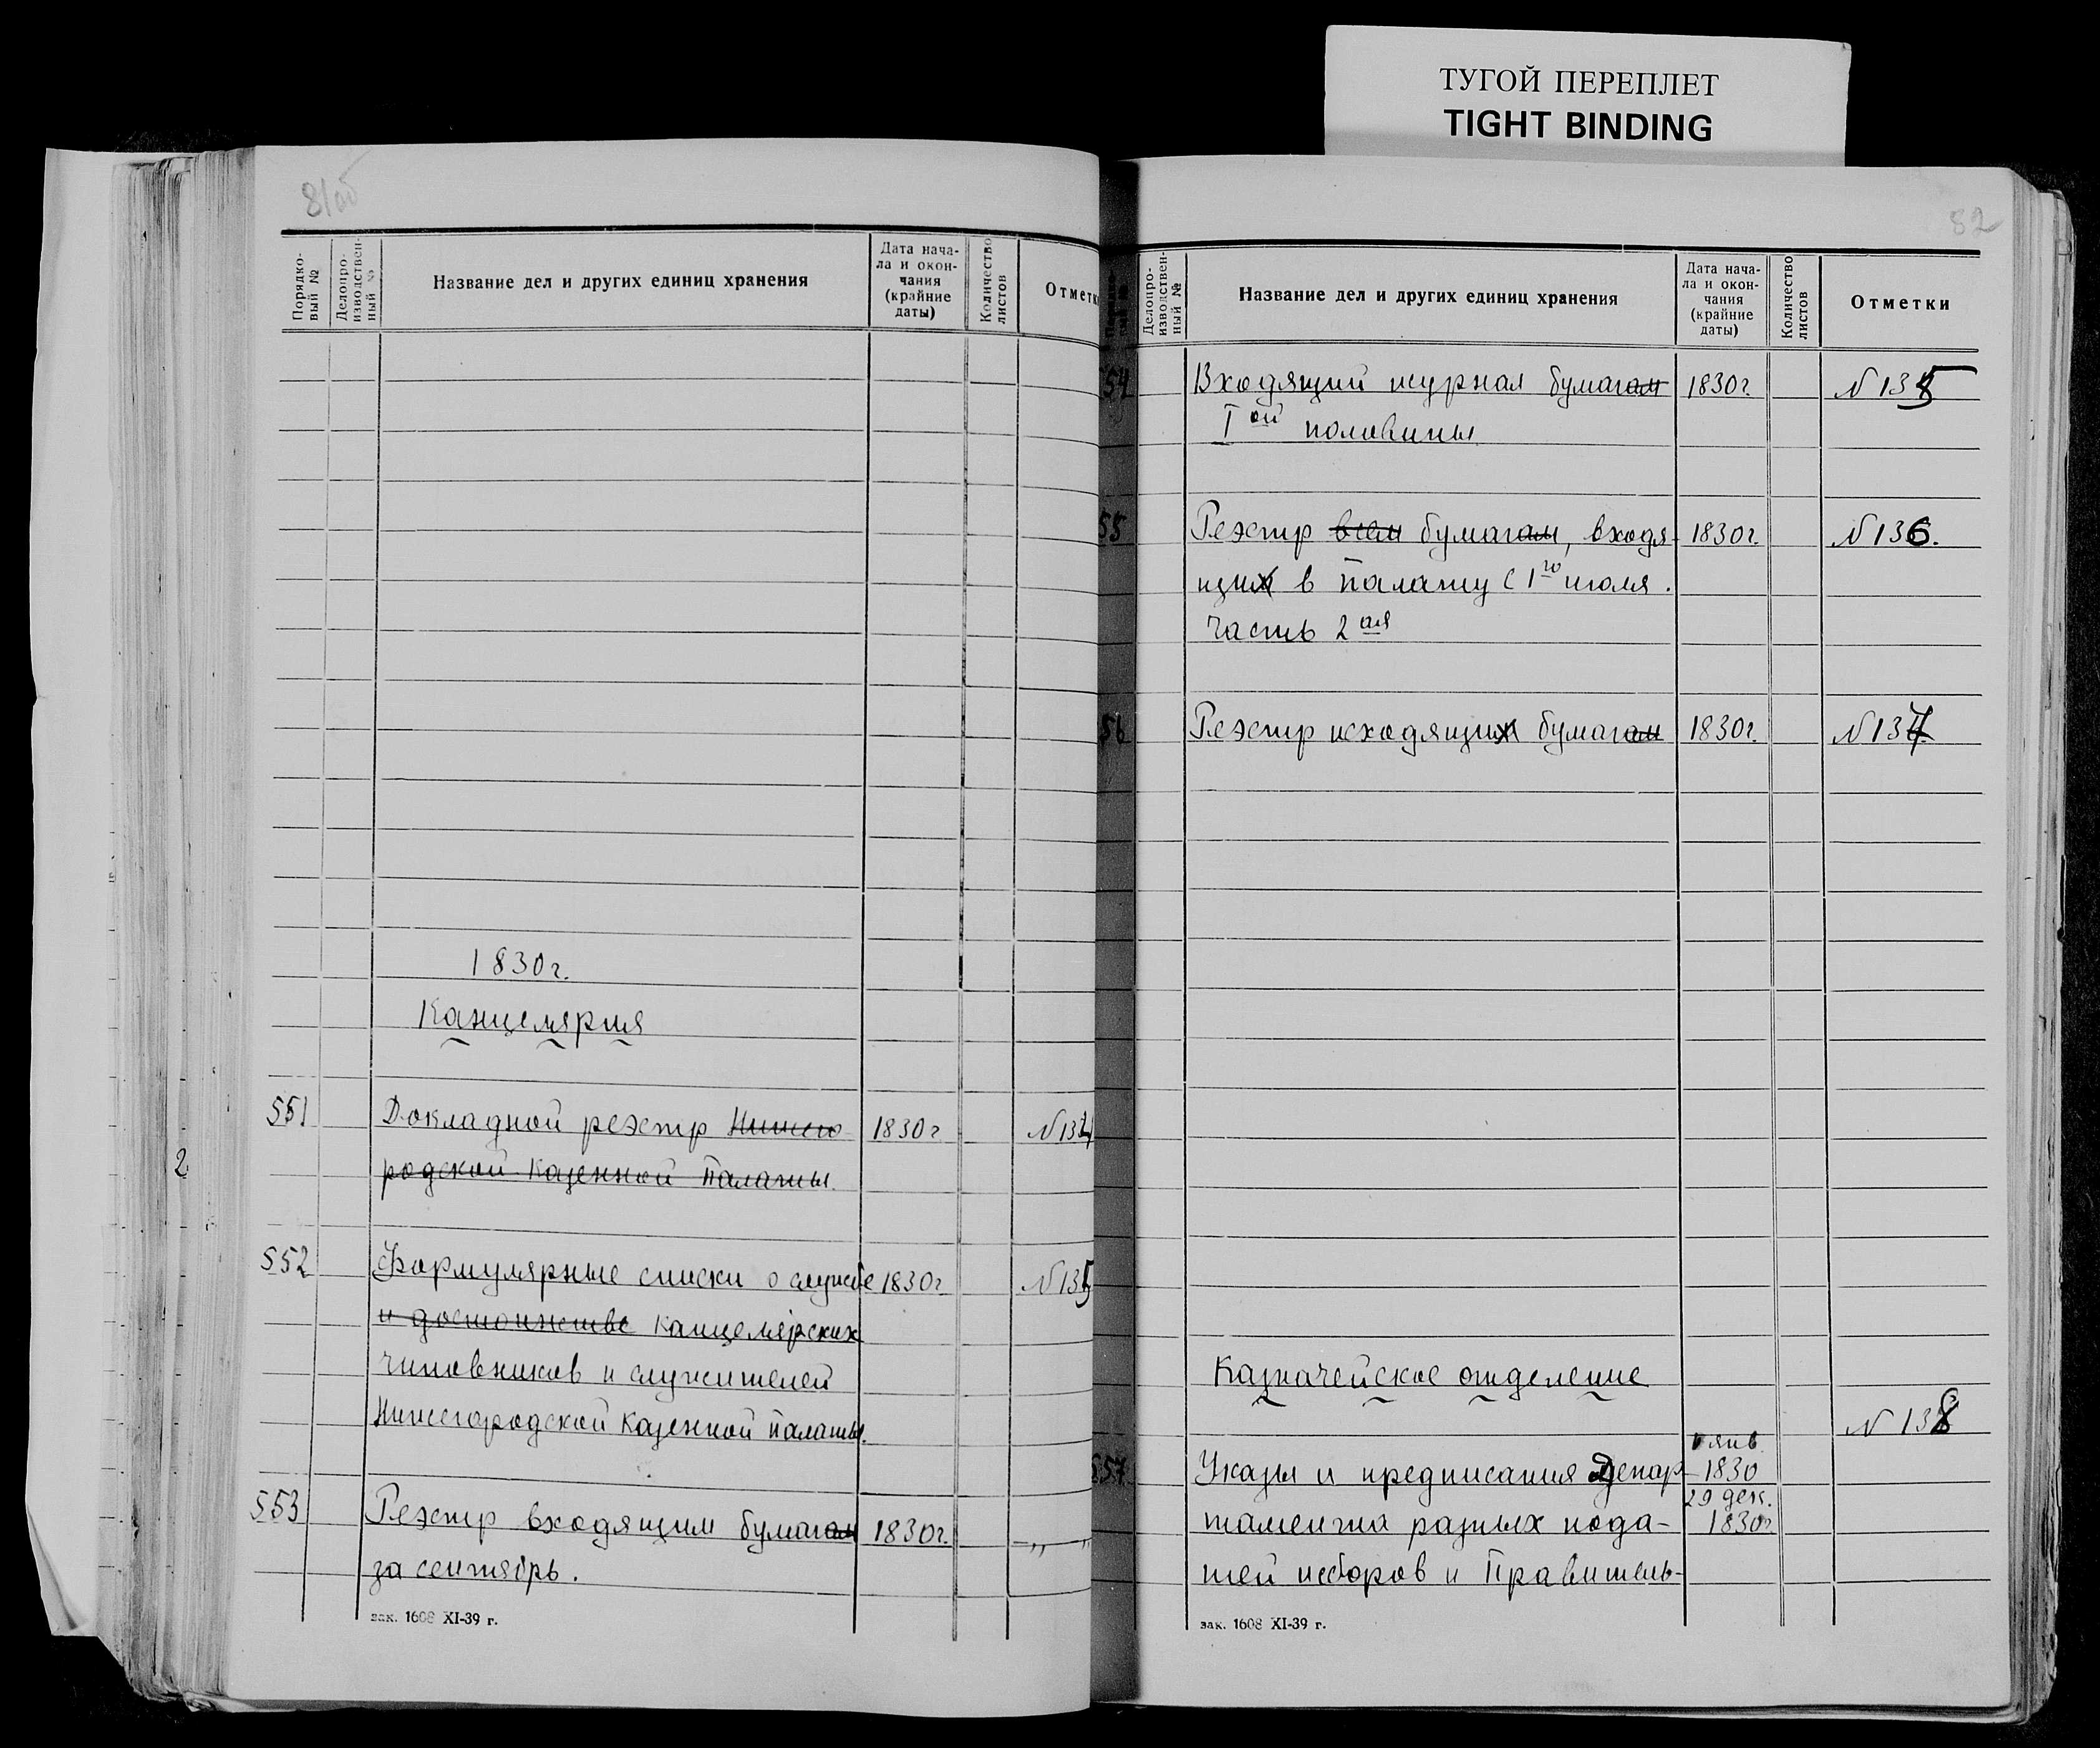 ТУГОЙ ПЕРЕПЛЕТ
TIGHT BINDING
81об
Порядко-
вый №
Делопро-
изводствен-
ный №
Название дел и других единиц хранения
Дата нача-
ла и окон-
чания
(крайние
даты)
Количество
листов
Отметк
1830г.
Канцелярия
551 Докладной реэстр Нижего- 1830г
родской Казенной Палаты.
552 Формулярные списки о службе 1830г №135
и достоинстве канцелярских
чиновников и служителей
Нижегородской Казенной палаты.
553 Реэстр входящим бумагам 1830г. „ „
за сентябрь.
зак. 1608 XI-39 г.
82
Делопро-
изводствен-
ный №
Название дел и других единиц хранения
Дата нача-
ла и окон-
чания
(крайние
даты)
Количество
листов
Отметки
54 Входящий журнал бумагам 1830г. №135
Iой половины
55 Реэстр всем бумагам, входя- 1830г. №136.
щих в палату с 1го июля.
часть 2ая
56 Реэстр исходящих бумагам 1830г. №137
Казначейское отделение
№ 138
янв.
557 Указы и предписания Депар- 1830
29 дек.
тамента разных пода- 1830г.
тей и сборов и Правитель-
зак. 1608 XI-39 г.
2